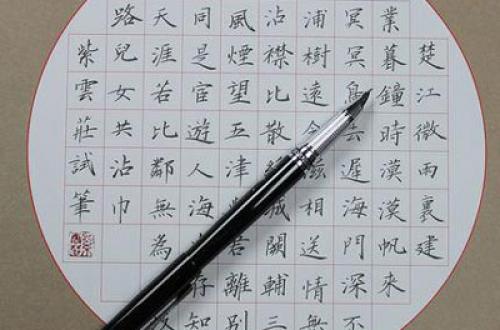 楚江微雨裏建
業暮鐘時漠漠帆來
冥冥鳥去遲海門深不
浦樹遠含滋相送情無
沾襟比散城闕輔三
風煙望五津君離別
同是宦遊人海存知
天涯若比鄰無為
路兒女共沾巾
紫雲莊試筆